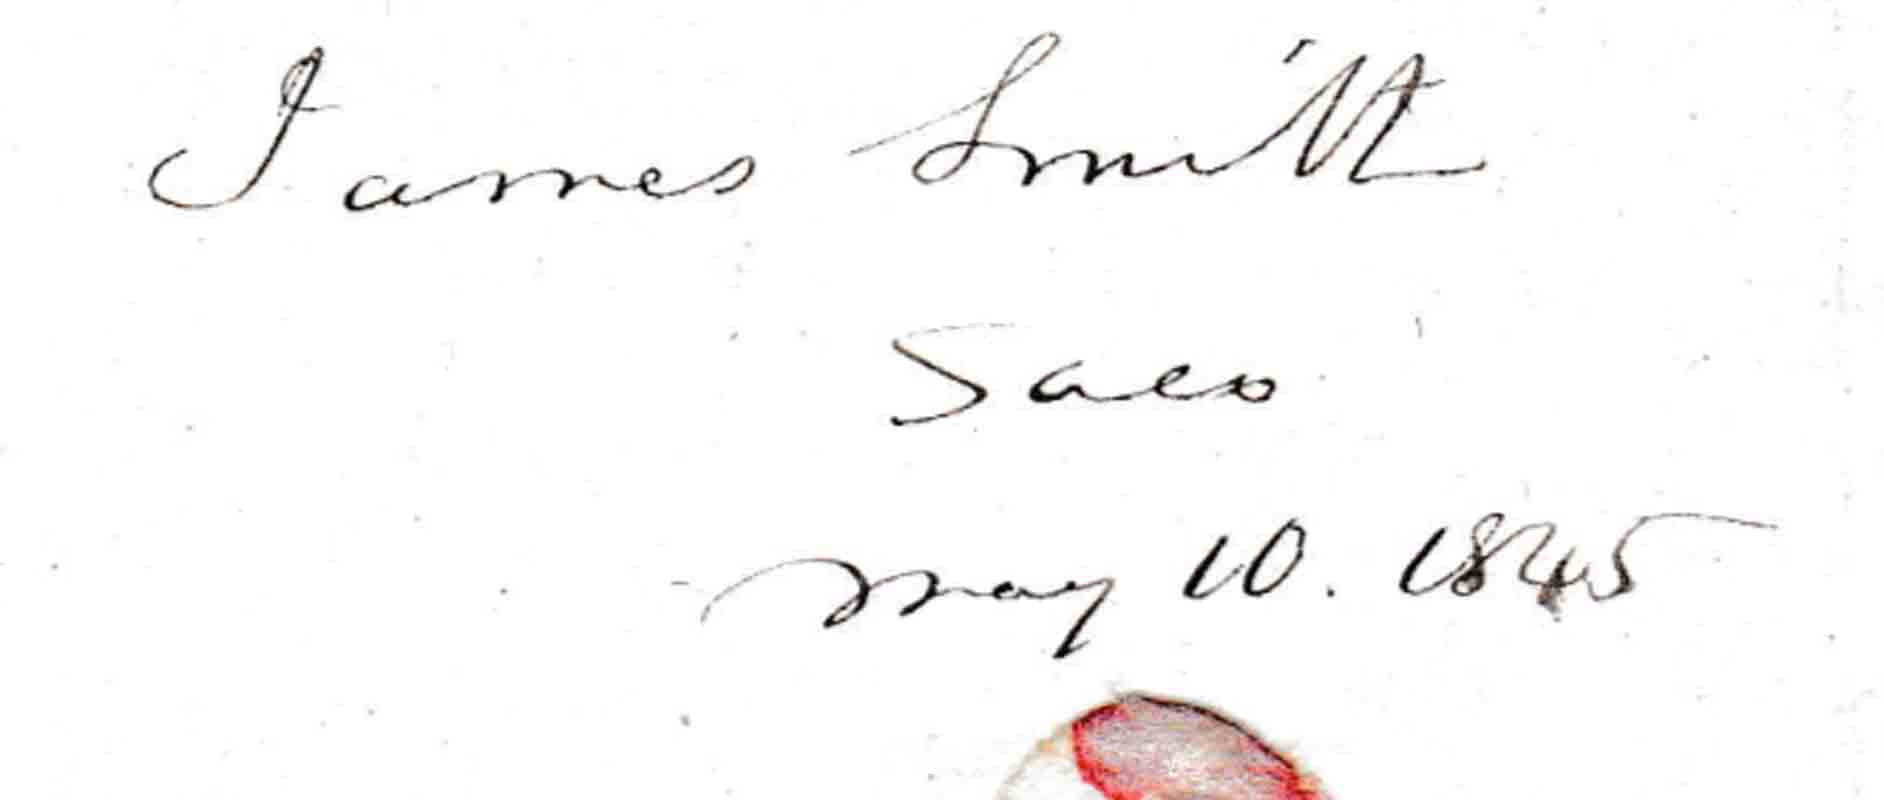 James Smith
Saco
May 10. 1845